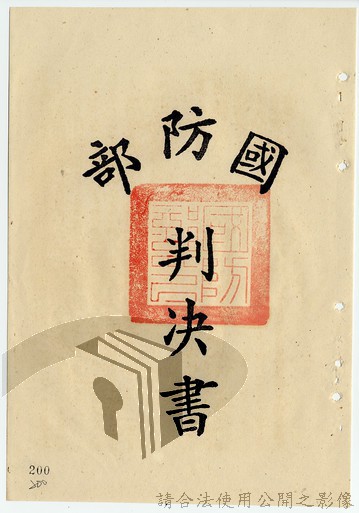 國防部
判決書
200
200
請合法使用公開之影像